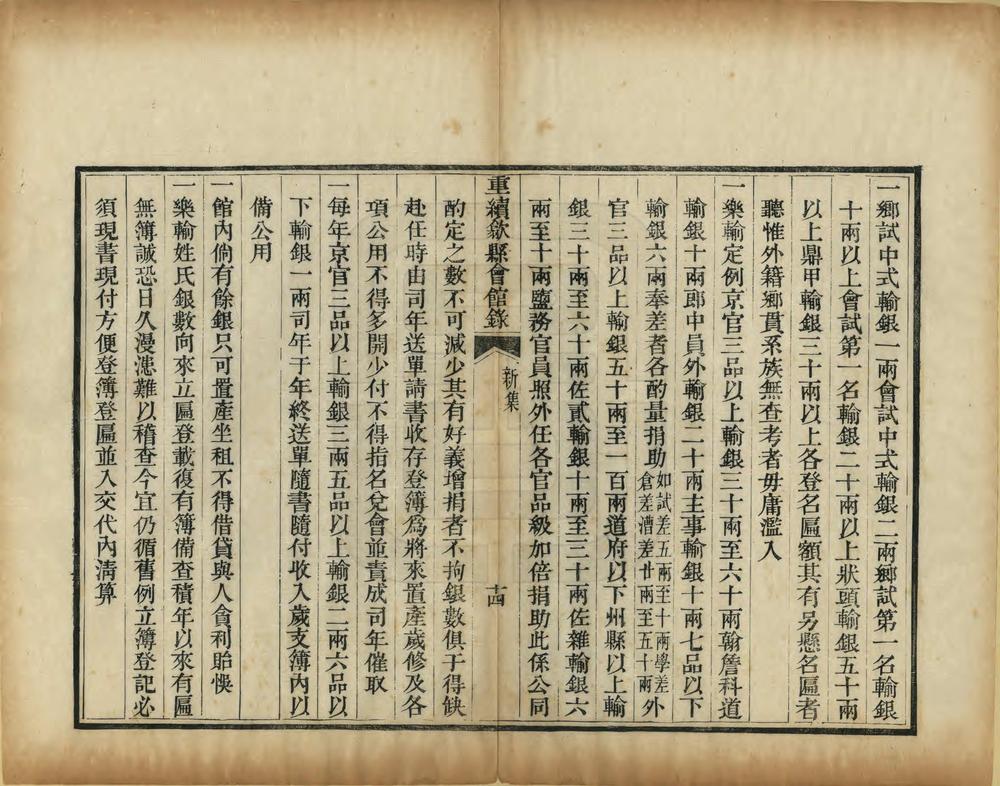 一鄉試中式輸銀一兩會試中式輸銀二兩鄉試第一名輸銀
十兩以上會試第一名輸銀二十兩以上狀頭輸銀五十兩
以上鼎甲輸銀三十兩以上各登名匾額其有另懸名匾者
聽惟外籍鄉貫系族無查考者毋庸濫入
一樂輸定例京官三品以上輸銀三十兩至六十兩翰詹科道
輸銀十兩郎中員外輸銀二十兩主事輸銀十兩七品以下
輸銀六兩奉差者各酌量捐助如試差五兩至十兩學差倉差漕差廿兩至五十兩外
官三品以上輸銀五十兩至一百兩道府以下州縣以上輸
銀三十兩至六十兩佐貳輸銀十兩至三十兩佐雜輸銀六
兩至十兩鹽務官員照外任各官品級加倍捐助此係公同
重續歙縣會館錄
新集
十四
酌定之數不可減少其有好義增捐者不拘銀數俱于得缺
赴任時由司年送單請書收存登簿為將來置產歲修及各
項公用不得多開少付不得指名兌會並責成司年催取
一每年京官三品以上輸銀三兩五品以上輸銀二兩六品以
下輸銀一兩司年于年終送單隨書隨付收入歲支簿內以
備公用
一館內倘有餘銀只可置產坐租不得借貸與人貪利貽悞
一樂輸姓氏銀數向來立匾登載復有簿備查積年以來有匾
無簿誠恐日久漫漶難以稽查今宜仍循舊例立簿登記必
須現書現付方便登簿登匾並入交代內清算